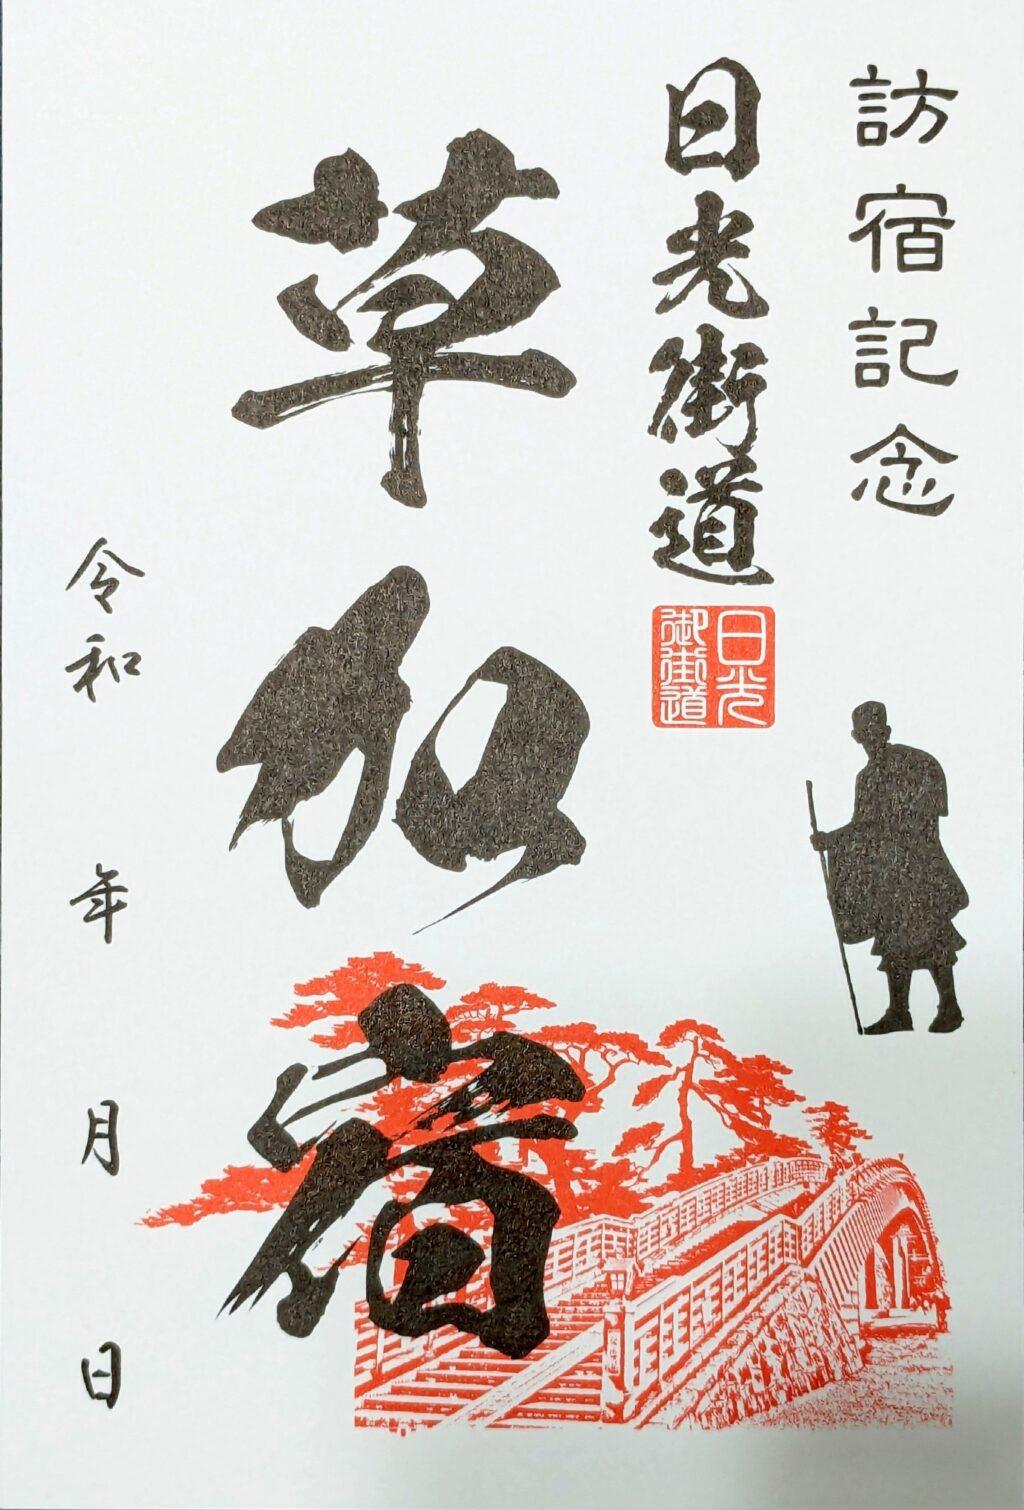 訪宿記念
日光街道
日光
御街道
草加宿
令和 年 月 日